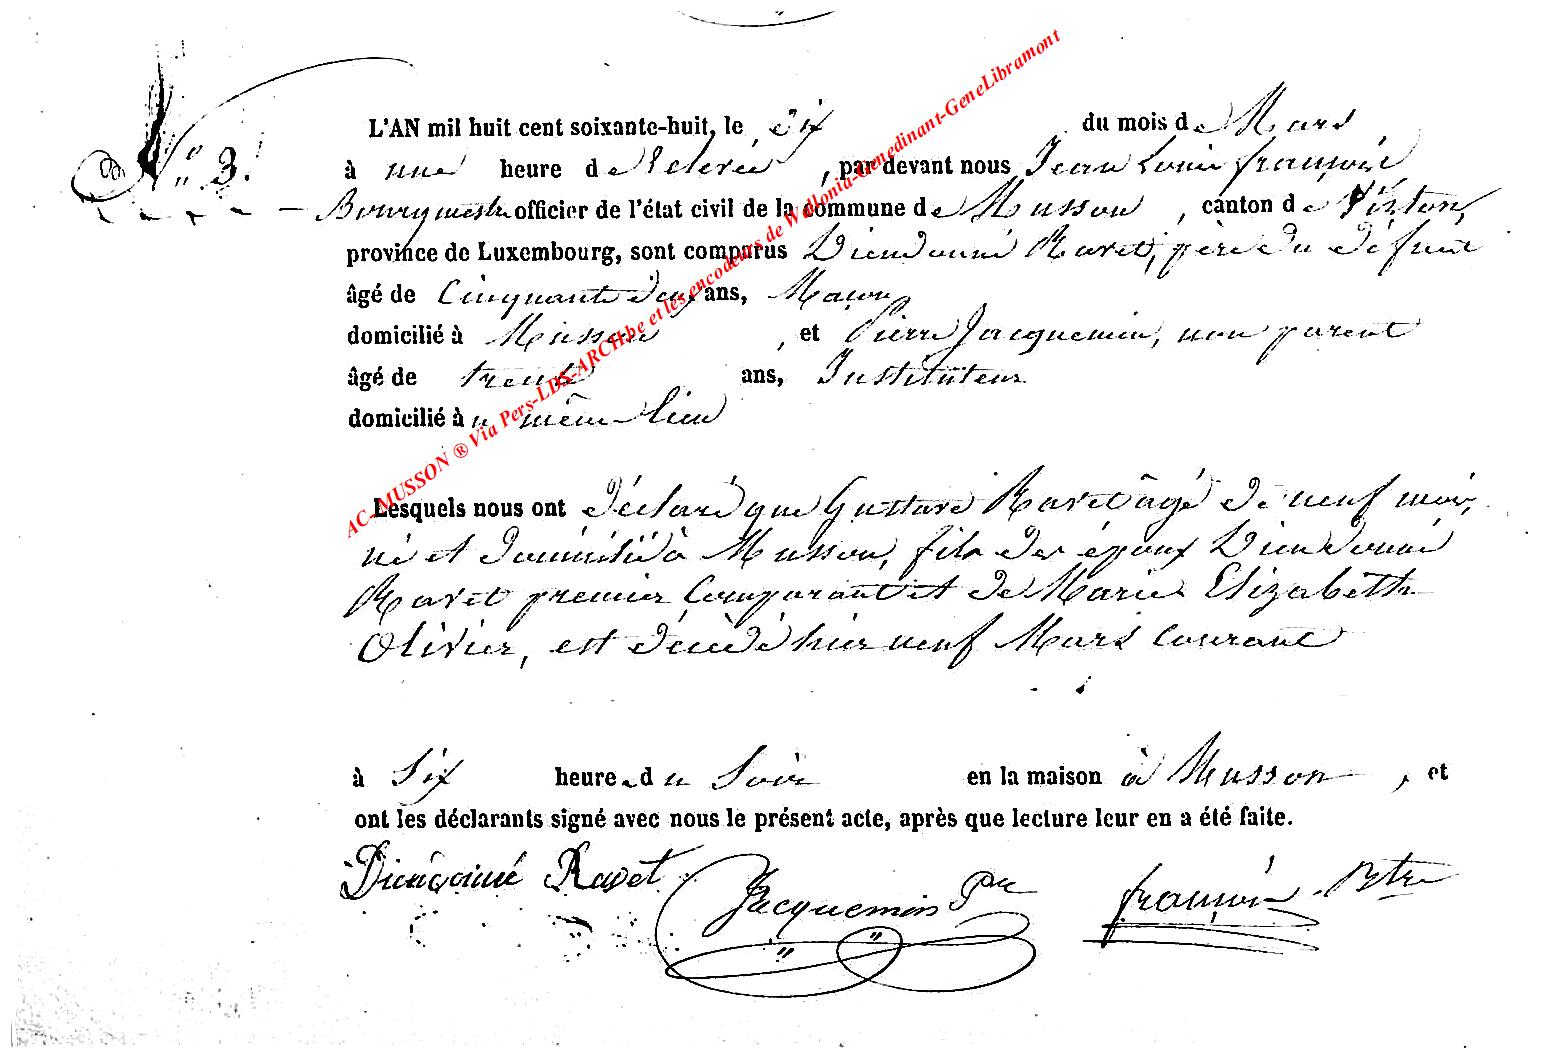 N° 3.
L'AN mil huit cent soixante-huit, le dix du mois de Mars,
à une heure de relevée, par devant nous Jean Louis françois
Bourgmestre officier de l'état civil de la commune de Musson, canton de Virton,
province de Luxembourg, sont comparus Dieudonné Ravet, père du défunt
âgé de Cinquante deux ans, Maçon,
domicilié à Musson, et Pierre Jacquemin, non parent
âgé de trente ans, Instituteur
domicilié au même lieu
Lesquels nous ont déclaré que Gustave Ravet âgé de neuf mois,
né et domicilié à Musson, fils des époux Dieudonné
Ravet premier Comparant et de Marie Elizabeth
Olivier, est décédé hier neuf Mars courant
à Six heures du Soir en la maison à Musson, et
ont les déclarants signé avec nous le présent acte, après que lecture leur en a été faite.
Dieudonné Ravet Jacquemin Pre françois Btre
AC-MUSSON ® Via Pers-LDS-ARCH.be et les encodeurs de Wallonia-Genedinant-GeneLibramont